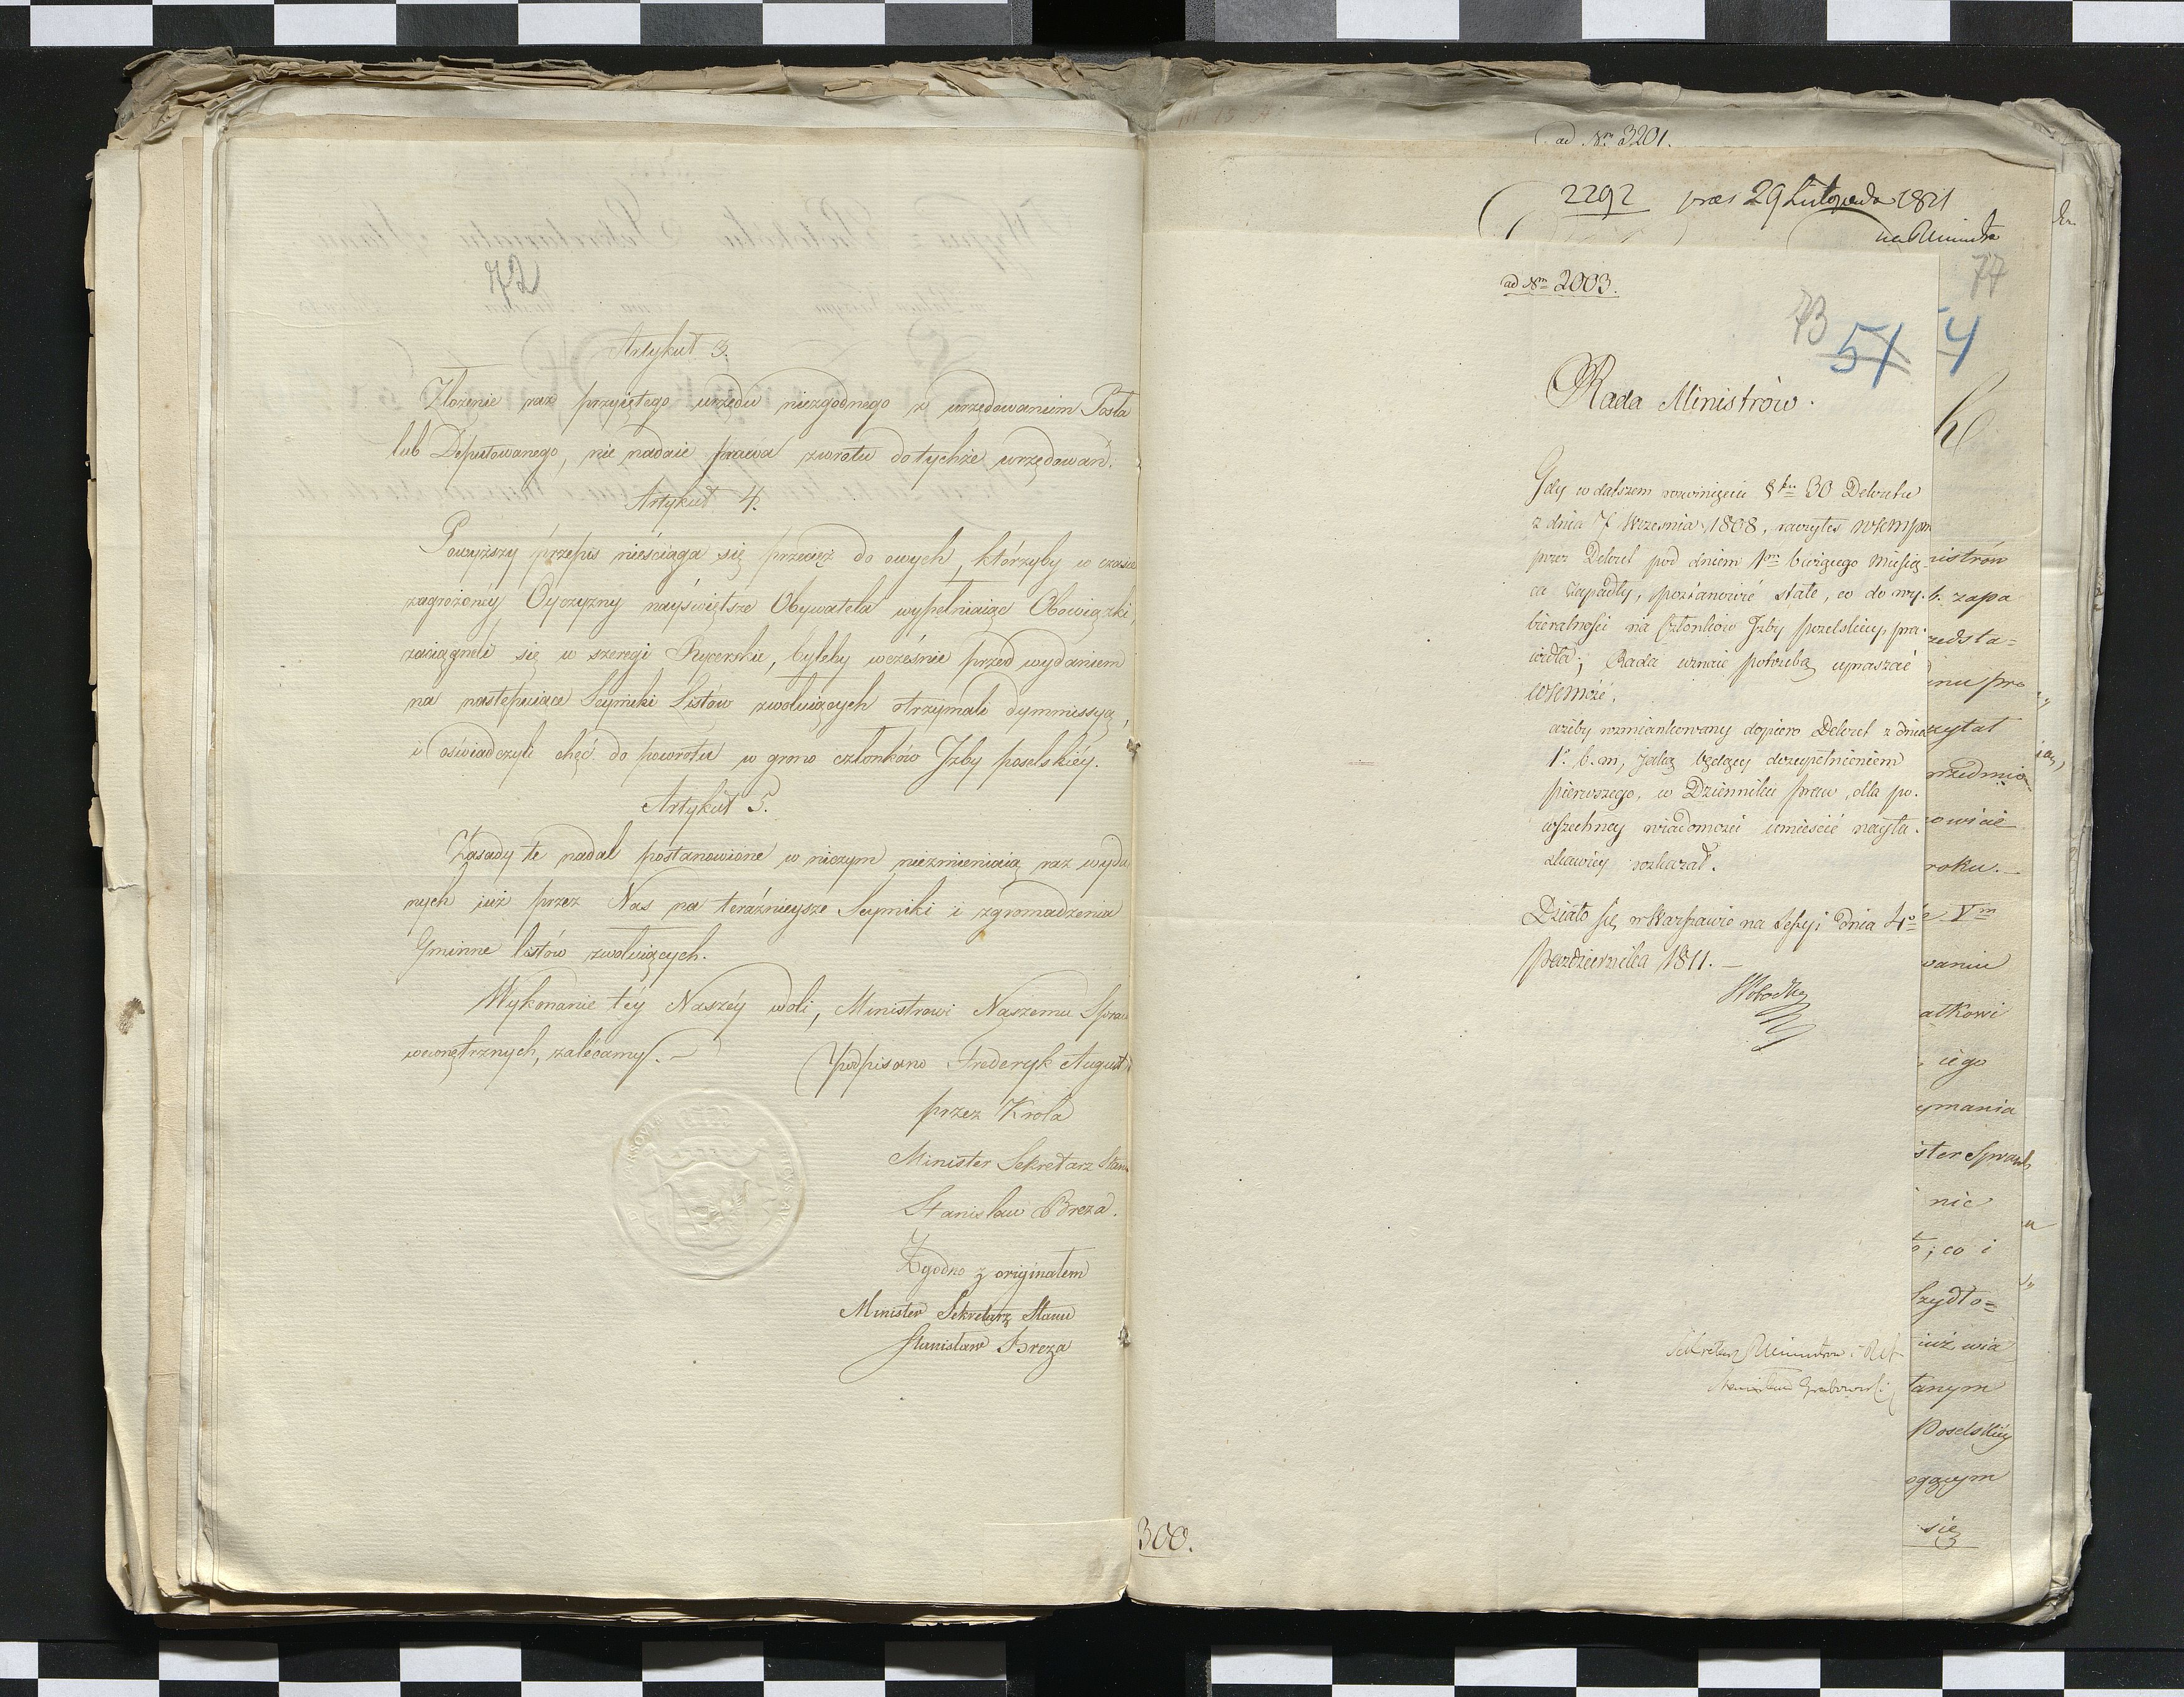 72
Artykuł 3.
Złożenie raz przyiętego urzędu niezgodnego z urzędowaniem Posła
lub Deputowanego, nie nadaie prawa zwrotu do tychże urzędowań.
Artykuł 4.
Powyższy przepis nieściąga się przecież do owych, którzyby w czasie
zagrożoney Oyczyzny nayświętsze Obywatela wypełniaiąc Obowiązki,
zaciągneli się w szeregi Rycerskie, byleby wcześnie przed wydaniem
na następuiące Seymiki Listów zwołuiących otrzymali dymmissyą,
i oświadczyli chęć do powrotu w grono członków Jzby poselskiéy.
Artykuł 5.
Zasady te nadal postanowione w niczym niezmieniaią raz wyda
nych już przez Nas na teraźnieysze Seymiki i zgromadzenia
Gminne listów zwołuiących.
Wykonanie téy Naszéy woli, Ministrowi Naszemu Spraw
wewnętrznych, zalecamy.
(Podpisano Frederyk August
przez Króla
Minister Sekretarz Stanu
Stanisław Breza.
Zgodno z originałem
Minister Sekretarz Stanu
Stanisław Breza
ad Nrm 3201.
2292 præs 29 Listopada 1811
77
ad Nrm 2003.
73 51 4
Rada Ministrów.
Gdy w dalszem rozwinięciu §fu 30 Dekretu
z dnia 7 Września 1808, raczyłeś WKMPM
przez Dekret pod dniem 1m bieżącego miesią-
ca zapadły, postanowić stałe, co do wy-
bieralności na Członków Jzby poselskiey, pra-
widła; Rada uznaie potrzebę upraszać
WKMość,
ażeby wzmiankowany dopiero Dekret z dnia
1o b. m, jako będący dozupełnieniem
pierwszego, w Dzienniku praw, dla po-
wszechney wiadomości umieścić nayła-
skawiey rozkazał.
Działo się w Warszawie na Sessyi dnia 4o
Października 1811.
Sekretarz Ministrów i Ref
Stanisław Grabowski
nistrów
zapa
zedsta=
roku.
Vm
waniu
iego
ymania
ster Spraw
nie
co i
już wia
tanym
Poselskiey
się
300.